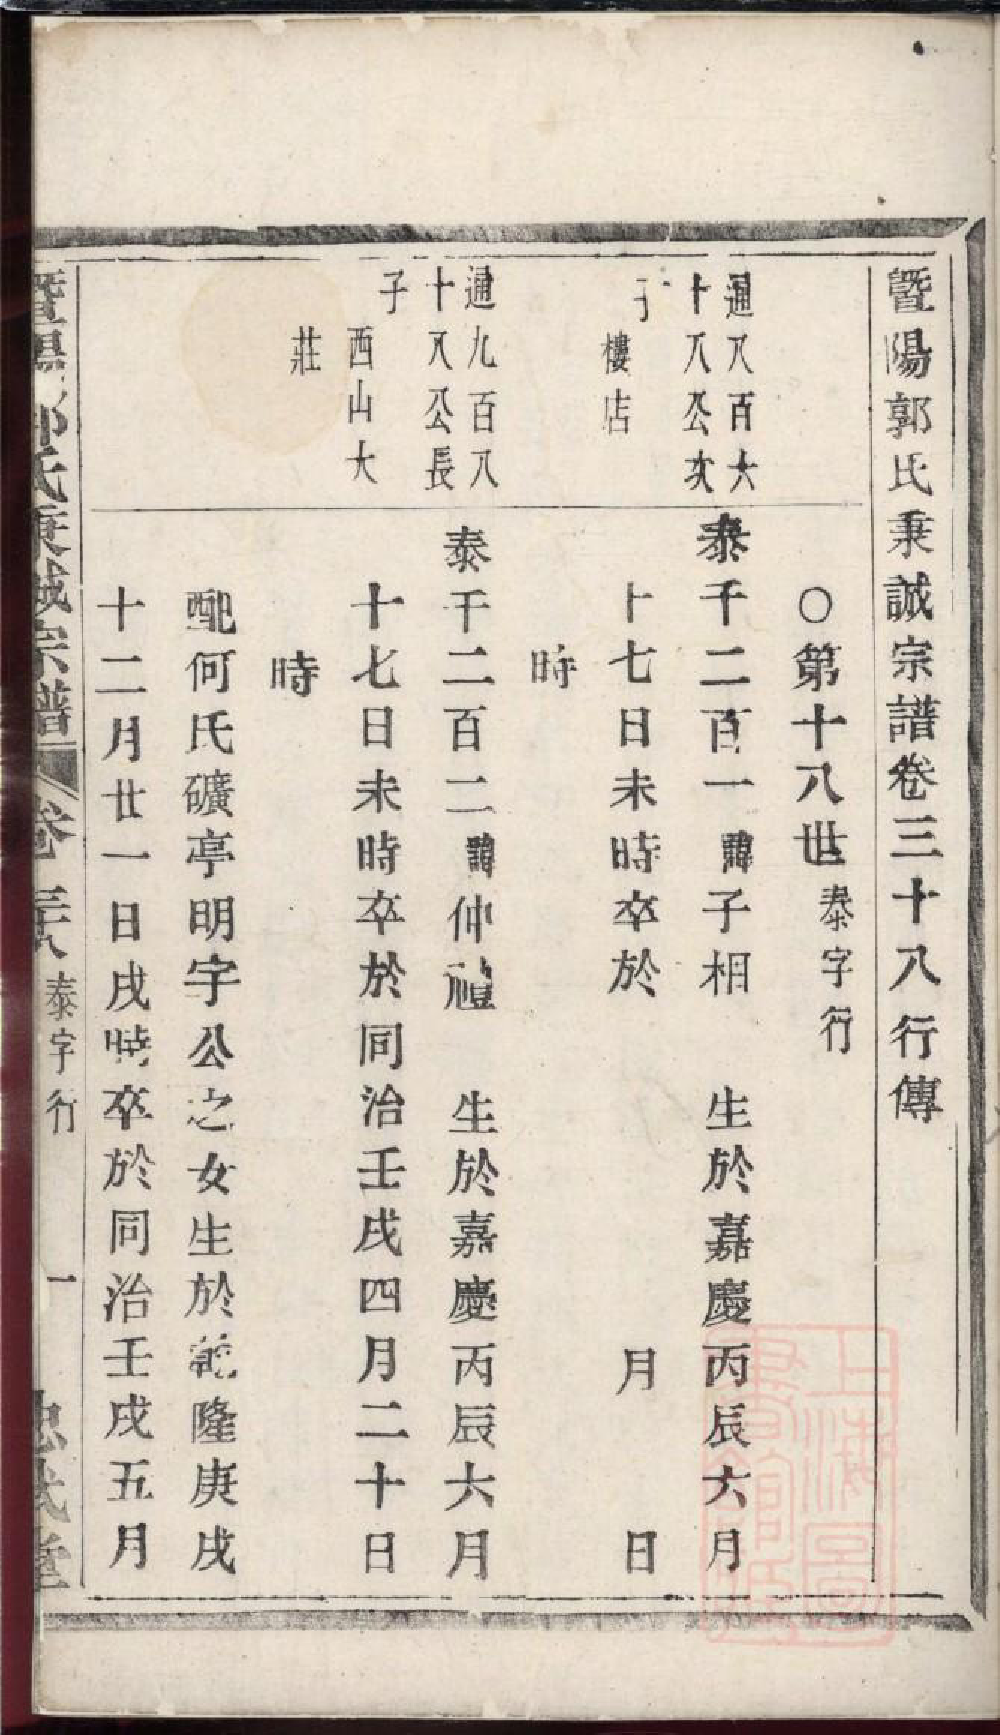 暨陽郭氏秉誠宗譜卷三十八行傳
〇第十八世泰字行
通八百六
十八公次
子
樓店
泰千二百一諱子相　生於嘉慶丙辰六月
十七日未時卒於　月　日
時
通九百八
十八公長
子
西山大
莊
泰千二百二諱仲禮　生於嘉慶丙辰六月
十七日未時卒於同治壬戌四月二十日
時
配何氏礦亭明字公之女生於乾隆庚戌
十二月廿一日戌時卒於同治壬戌五月
暨陽郭氏秉誠宗譜　卷三十八　泰字行　一　忠武堂
上海圖
書館藏